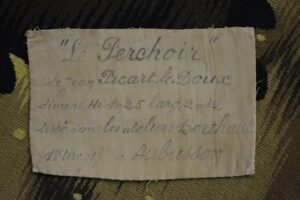 "Le Perchoir"
de Jean Picart le Doux
dimens. Hr 1m25 larg. 2m12
tissé dans les ateliers
à Aubusson